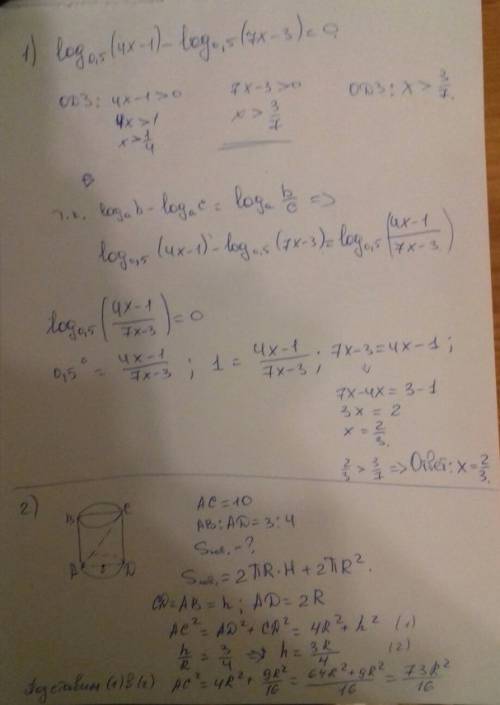 1) log₀,₅(4x-1) - log₀,₅(7x-3) = 0
ОДЗ: 4x-1>0 7x-3>0 ОДЗ: x > 3/7.
4x>1 x > 3/7
x > 1/4
т.к. logₐb - logₐc = logₐ b/c =>
log₀,₅(4x-1) - log₀,₅(7x-3) = log₀,₅((4x-1)/(7x-3))
log₀,₅((4x-1)/(7x-3)) = 0
0,5⁰ = (4x-1)/(7x-3); 1 = (4x-1)/(7x-3); 7x-3=4x-1;
7x-4x = 3-1
3x = 2
x = 2/3.
2/3 > 3/7 => Ответ: x = 2/3.
2) B C A D
AC=10
AB:AD=3:4
-?
= 2πR·H + 2πR².
CD=AB=h; AD=2R
AC² = AD² + CD² = 4R² + h² (1)
h/R = 3/4 => h = 3R/4 (2)
Подставим (1) в (2) AC² = 4R² + 9R²/16 = (64R²+9R²)/16 = 73R²/16